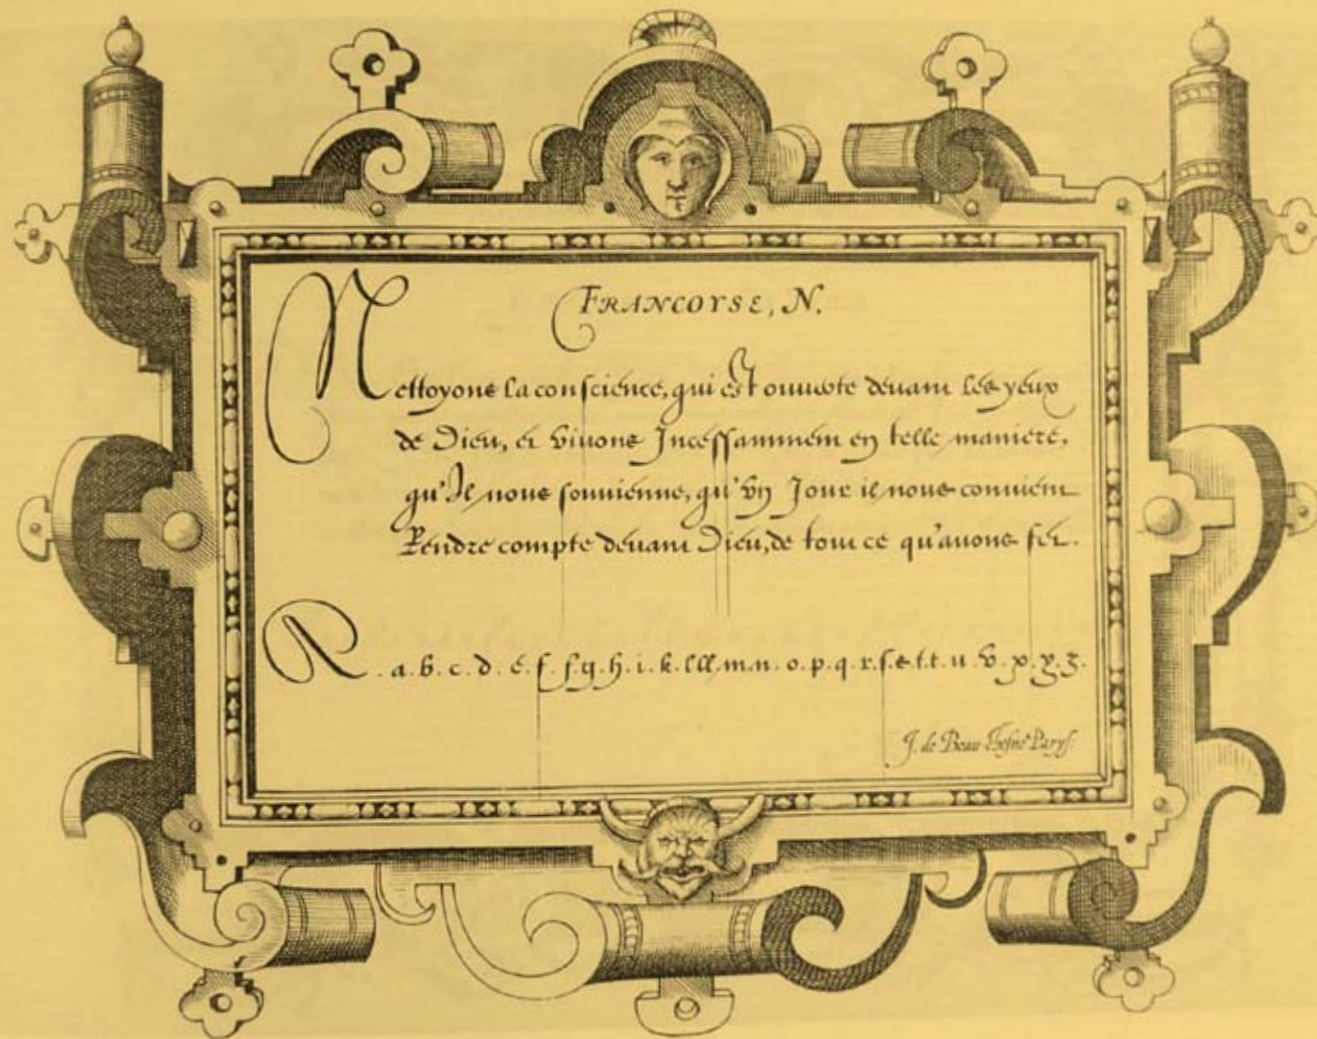 FRANCOYSE, N.
Nettoyons la conscience, qui est ouuerte deuant les yeux
de Dieu, et viuons Incessamment en telle maniere,
qu'Il nous souuienne, qu'vn Jour il nous conuient
Rendre compte deuant Dieu, de tout ce qu'auons fet.
A. a. b. c. d. e. f. f. g. h. i. k. l l l. m. n. o. p. q. r. s. s. t. t. u. v. x. y. z.
J. de Beau-Chesne Parys.